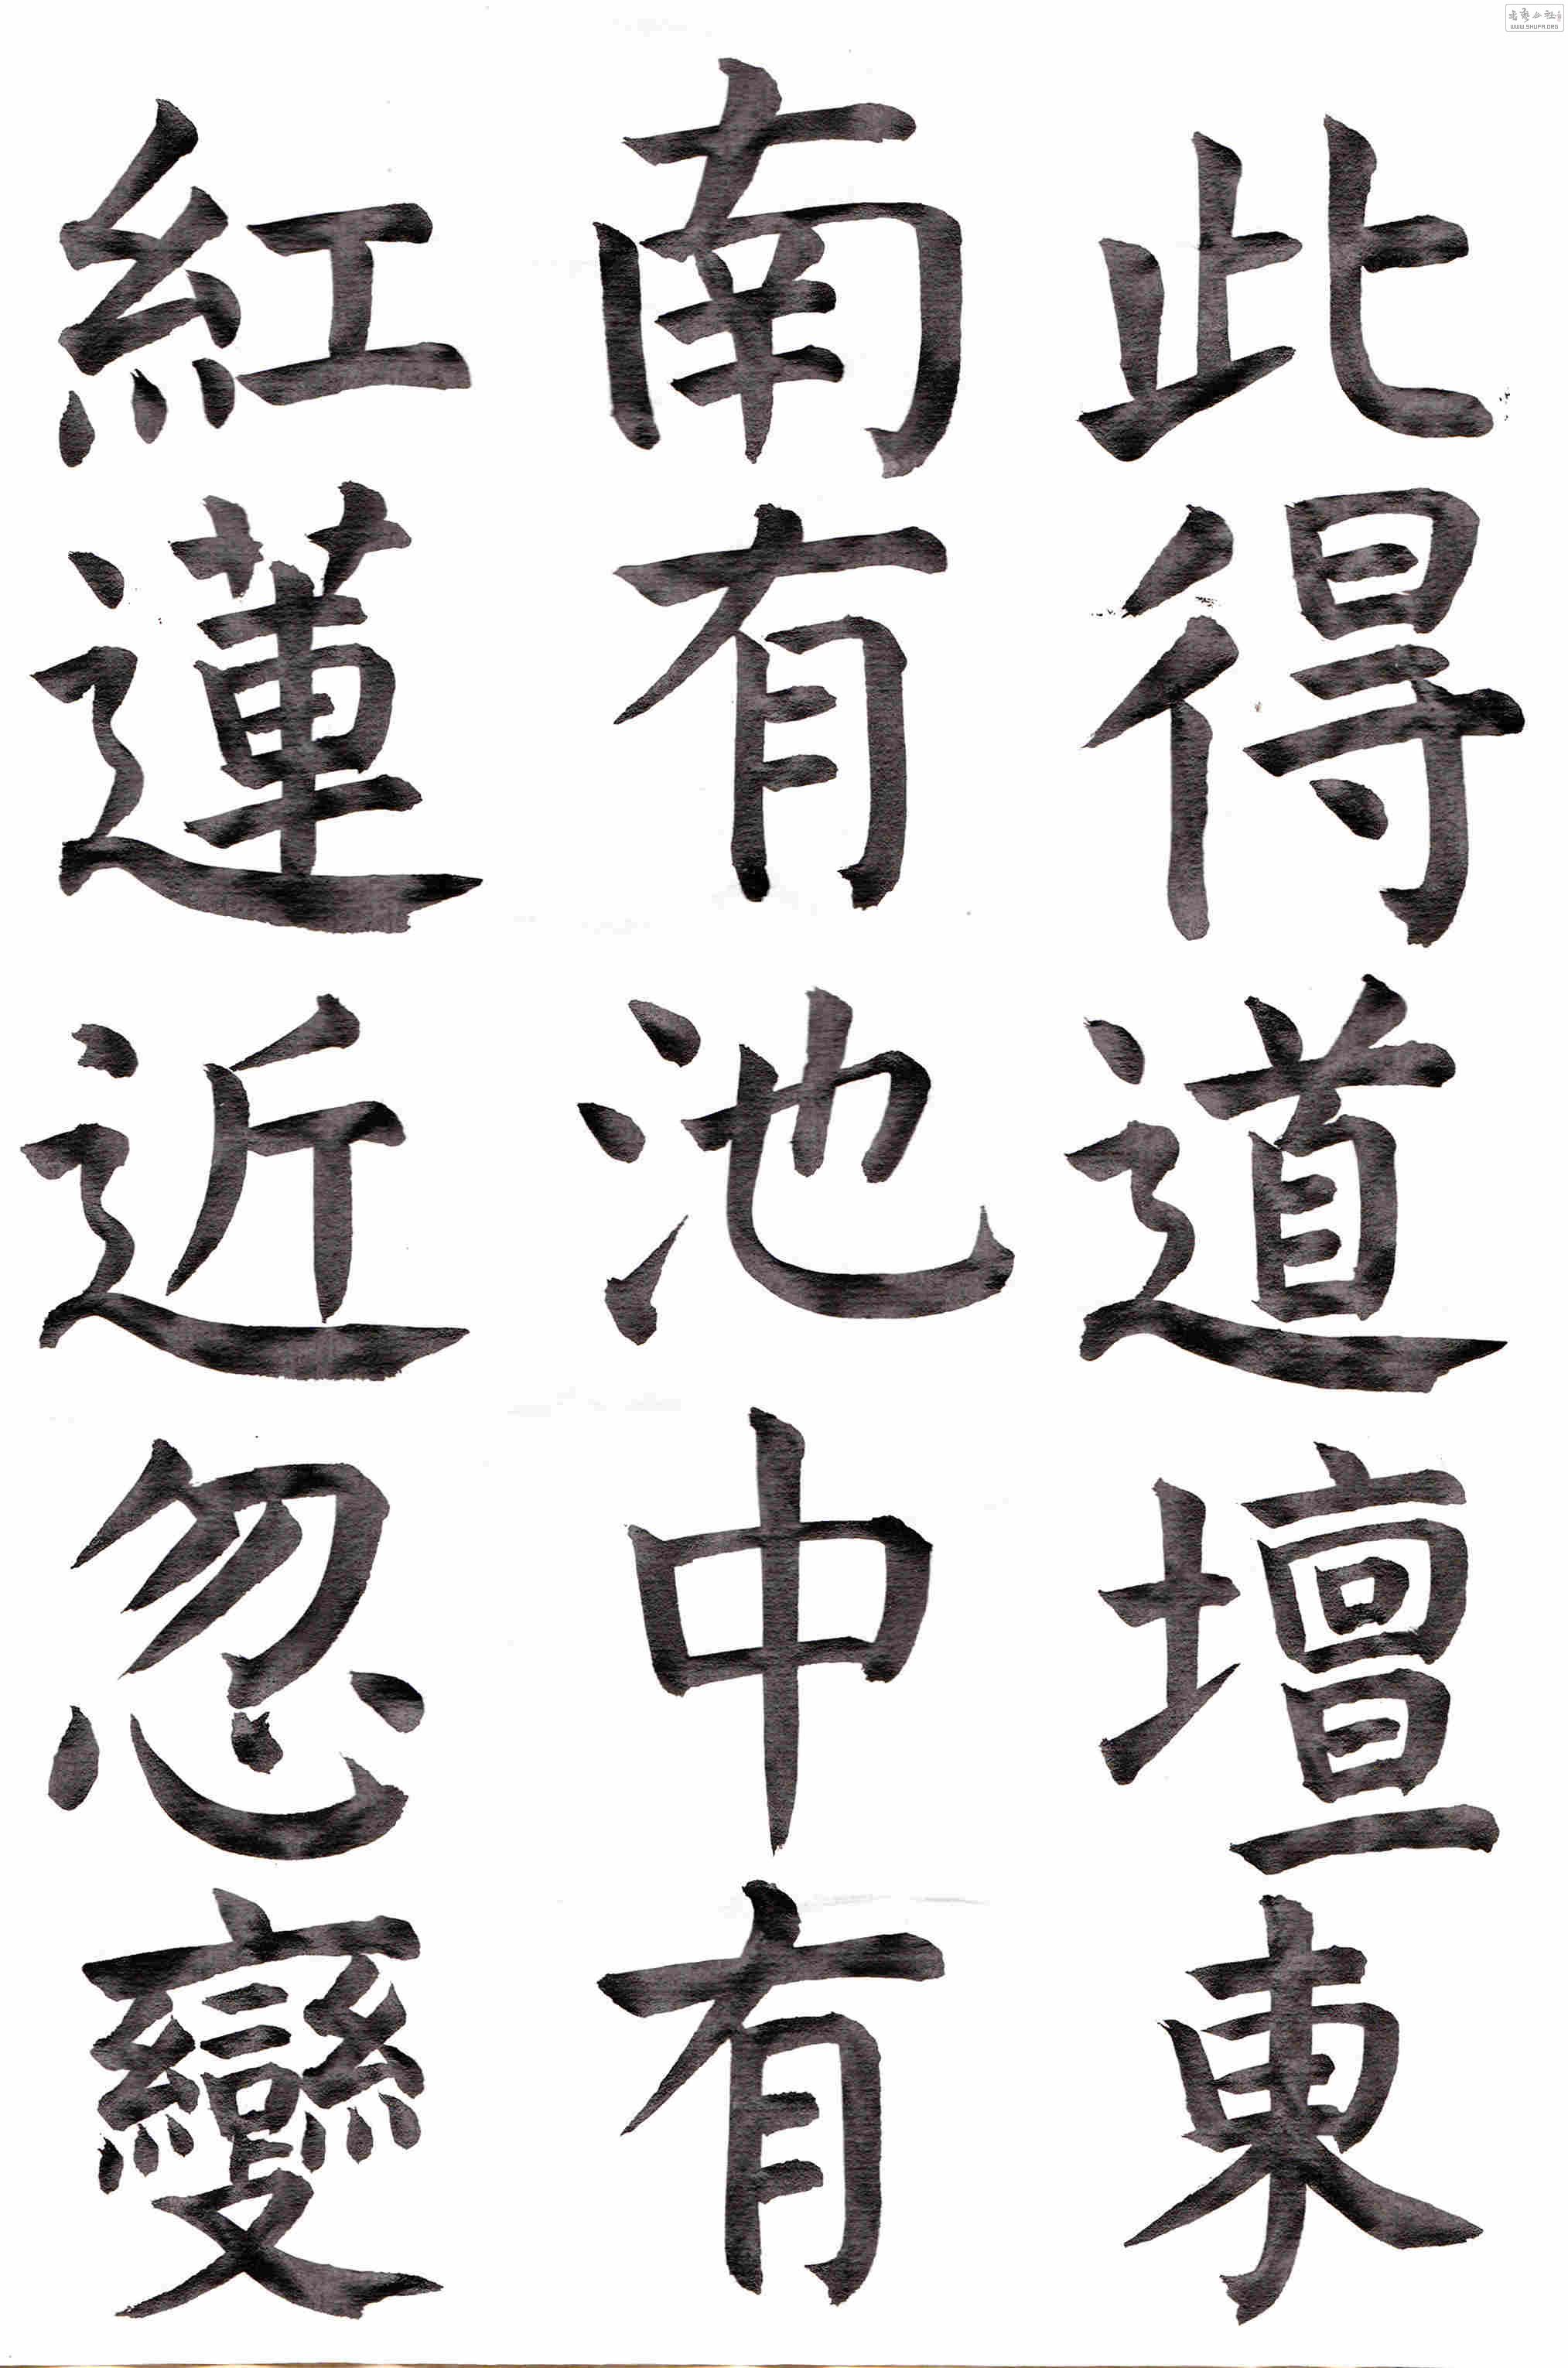 此得道壇東
南有池中有
紅蓮近忽變
WWW.SHUFA.ORG